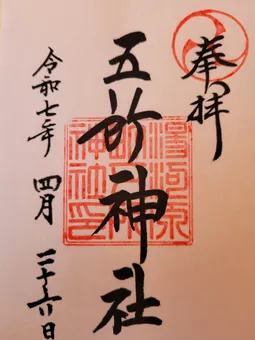 奉拝
五所神社
令和七年 四月 二十六日
湯河原
神社印